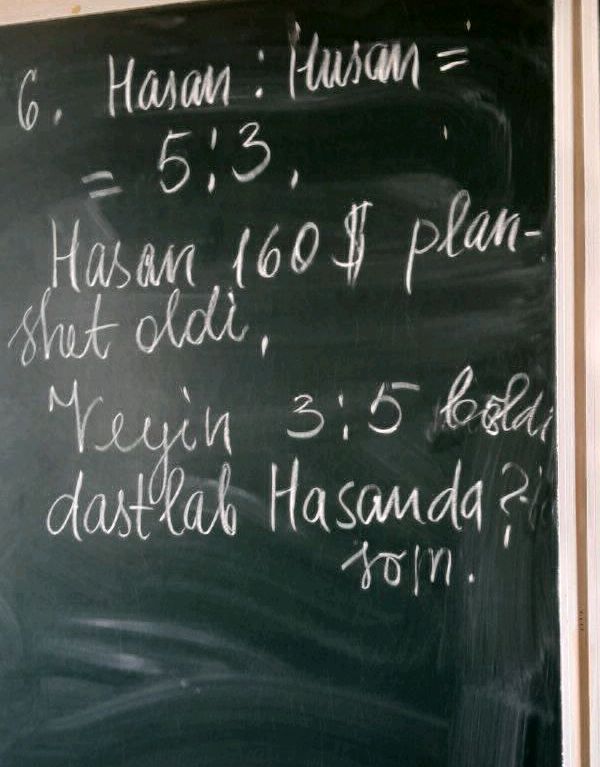 6. Hasan : Husan =
= 5:3.
Hasan 160 $ plan-
shet oldi,
Keyin 3:5 bo'ldi
dastlab Hasanda ?
som.